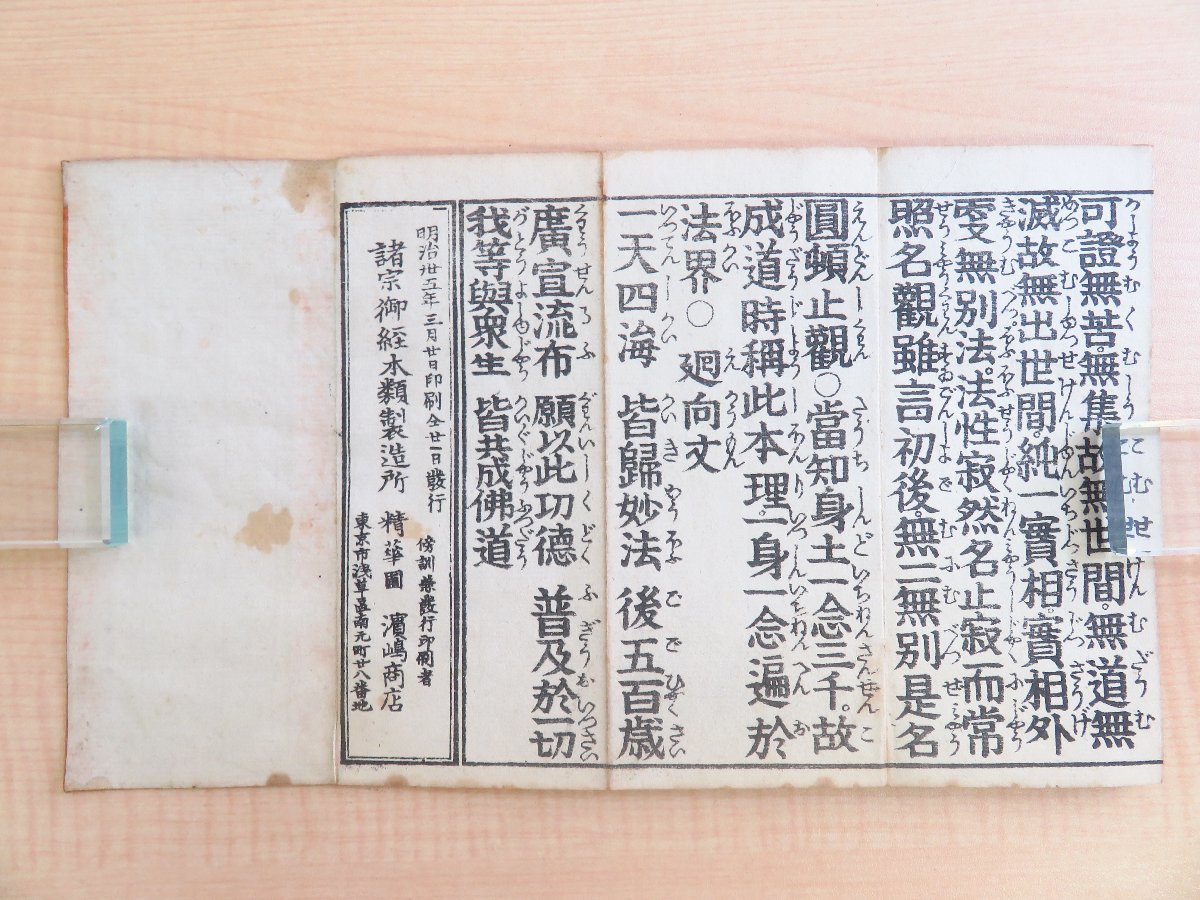 可證無苦無集故無世間無道無
滅故無出世間純一實相實相外
更無別法法性寂然名止寂而常
照名觀雖言初後無二無別是名
圓頓止觀○當知身土一念三千故
成道時稱此本理一身一念遍於
法界○ 廻向文
一天四海 皆歸妙法 後五百歳
廣宣流布 願以此功德 普及於一切
我等與衆生 皆共成佛道
明治卅五年三月廿日印刷仝廿一日發行
傍訓兼發行印刷者
諸宗御經本類製造所 精華圓 濱嶋商店
東京市浅草區南元町廿八番地